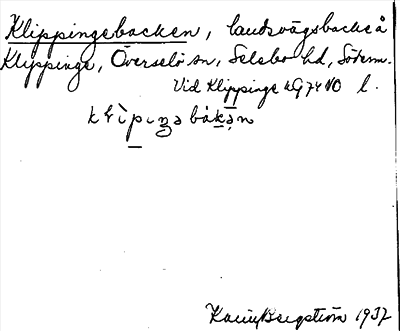 Klippingebacken, landsvägsbacke å
Klippinge, Överselö sn, Selebo hd, Söderm.
Vid Klippinge kG 74 NO l.
Karin Bergström 1937